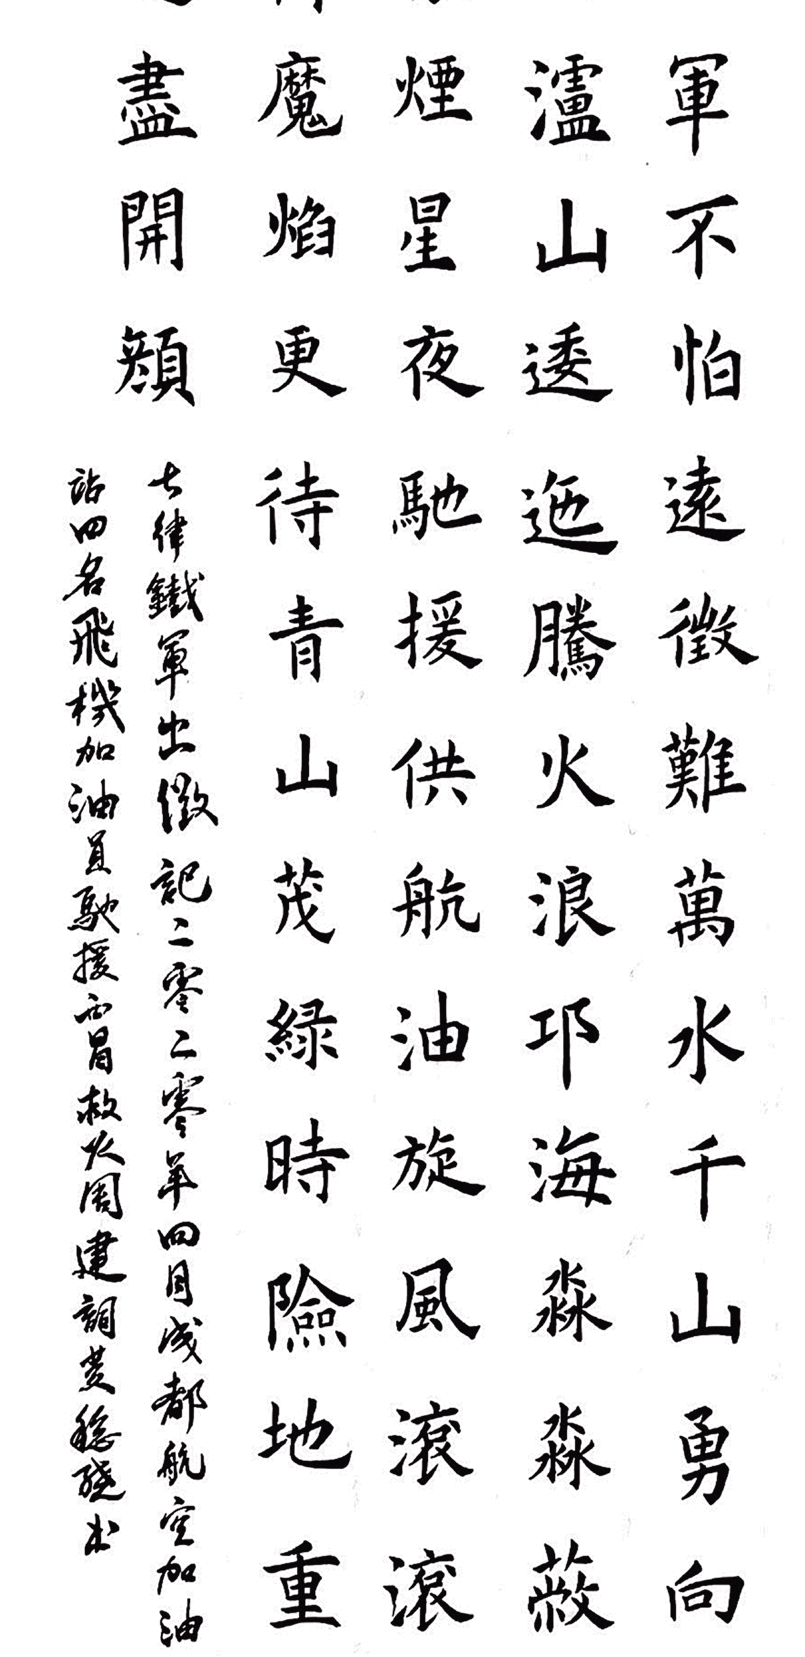 軍不怕遠徵難萬水千山勇向
瀘山逶迤騰火浪邛海淼淼蔽
煙星夜馳援供航油旋風滾滾
魔焰更待青山茂綠時險地重
盡開顏
七律鐵軍出徵記二零二零年四月成都航空加油
站四名飛機加油員馳援西昌救火周建詞黃穩曉書